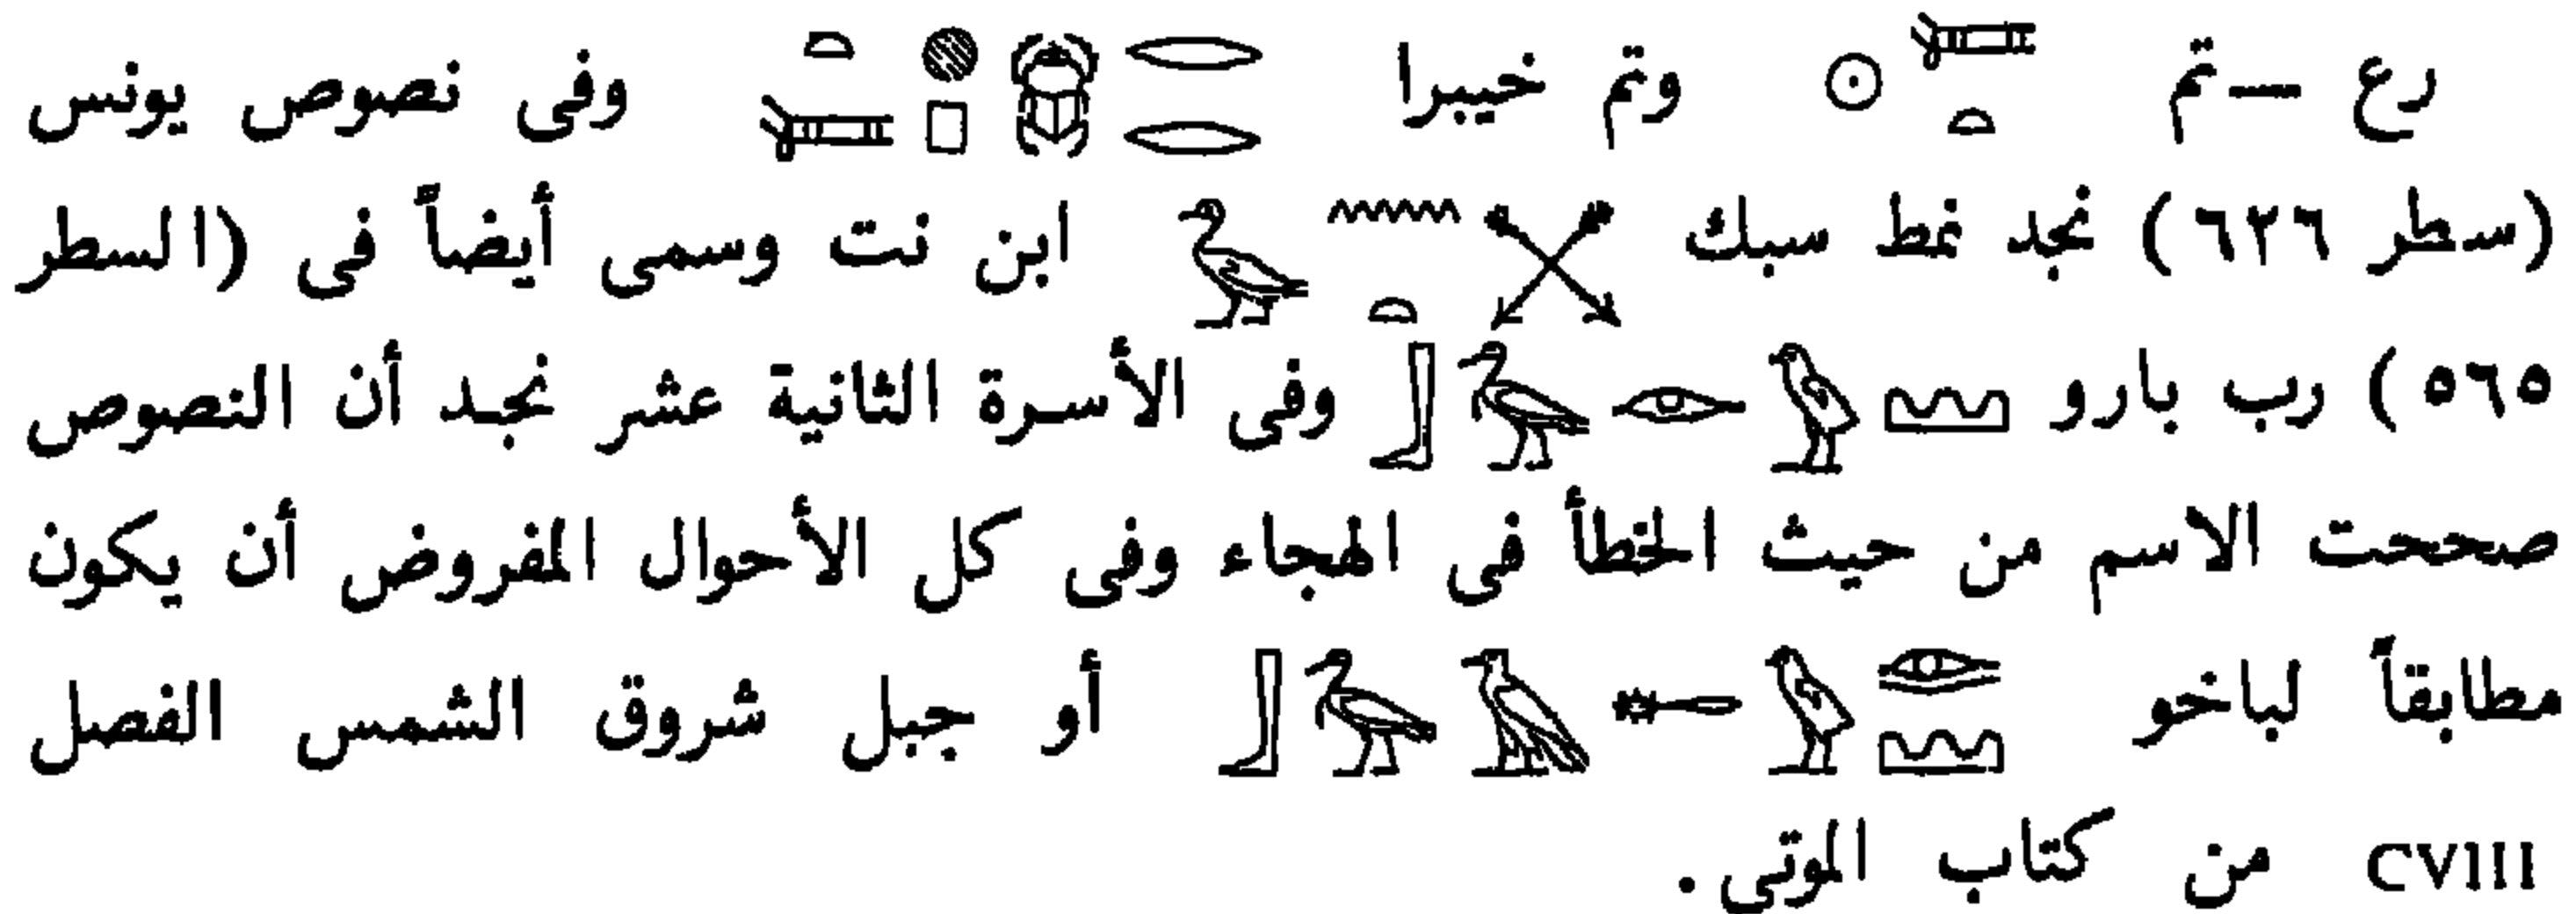 رع — تم 𓍃𓏏𓇳 وتم خيبرا 𓂋𓂋𓆣𓐍𓊪𓏏𓍃 وفى نصوص يونس
(سطر ٦٣٦) نجد نمط سبك 𓈖𓏏𓅭 ابن نت وسمى أيضاً فى (السطر
٥٦٥) رب بارو 𓈋𓅱𓁹𓅡𓃀 وفى الأسرة الثانية عشر نجد أن النصوص
صححت الاسم من حيث الخطأ فى الهجاء وفى كل الأحوال المفروض أن يكون
مطابقاً لباخو 𓈋𓅱𓄿𓅡𓃀 أو جبل شروق الشمس الفصل
CVIII من كتاب الموتى .